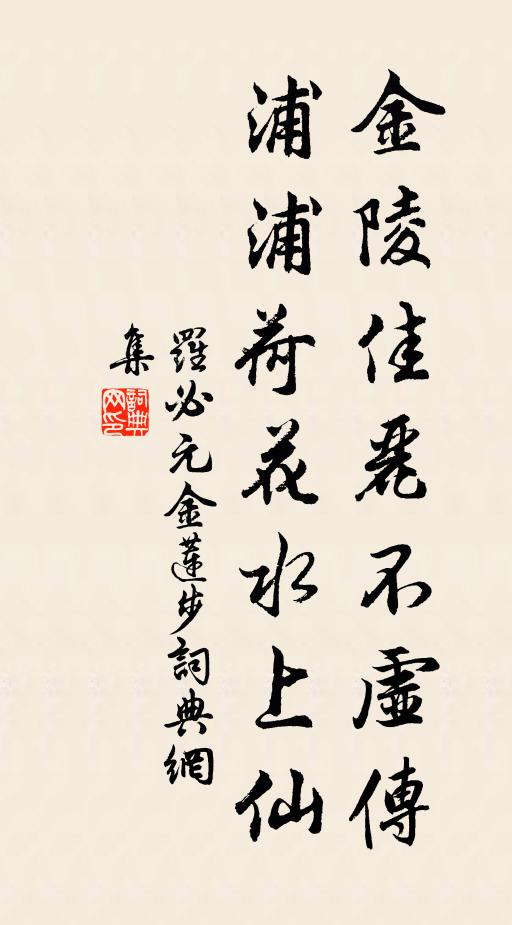 金陵佳麗不虛傳
浦浦荷花水上仙
羅必元金蓮步詞典網
集
詞典
网印